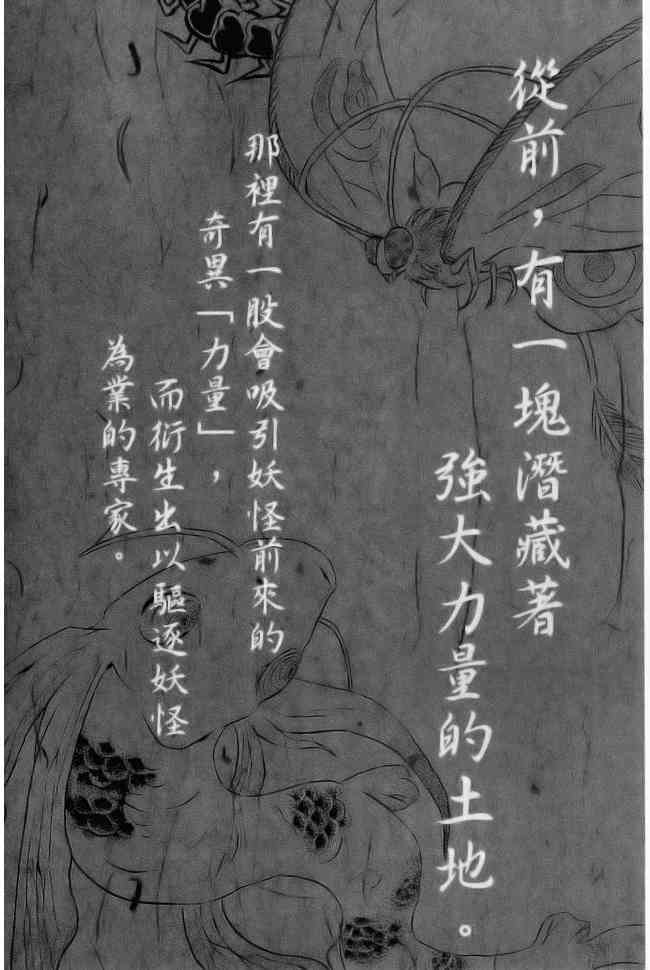 從前，有一塊潛藏著
強大力量的土地。
那裡有一股會吸引妖怪前來的
奇異「力量」，
而衍生出以驅逐妖怪
為業的專家。